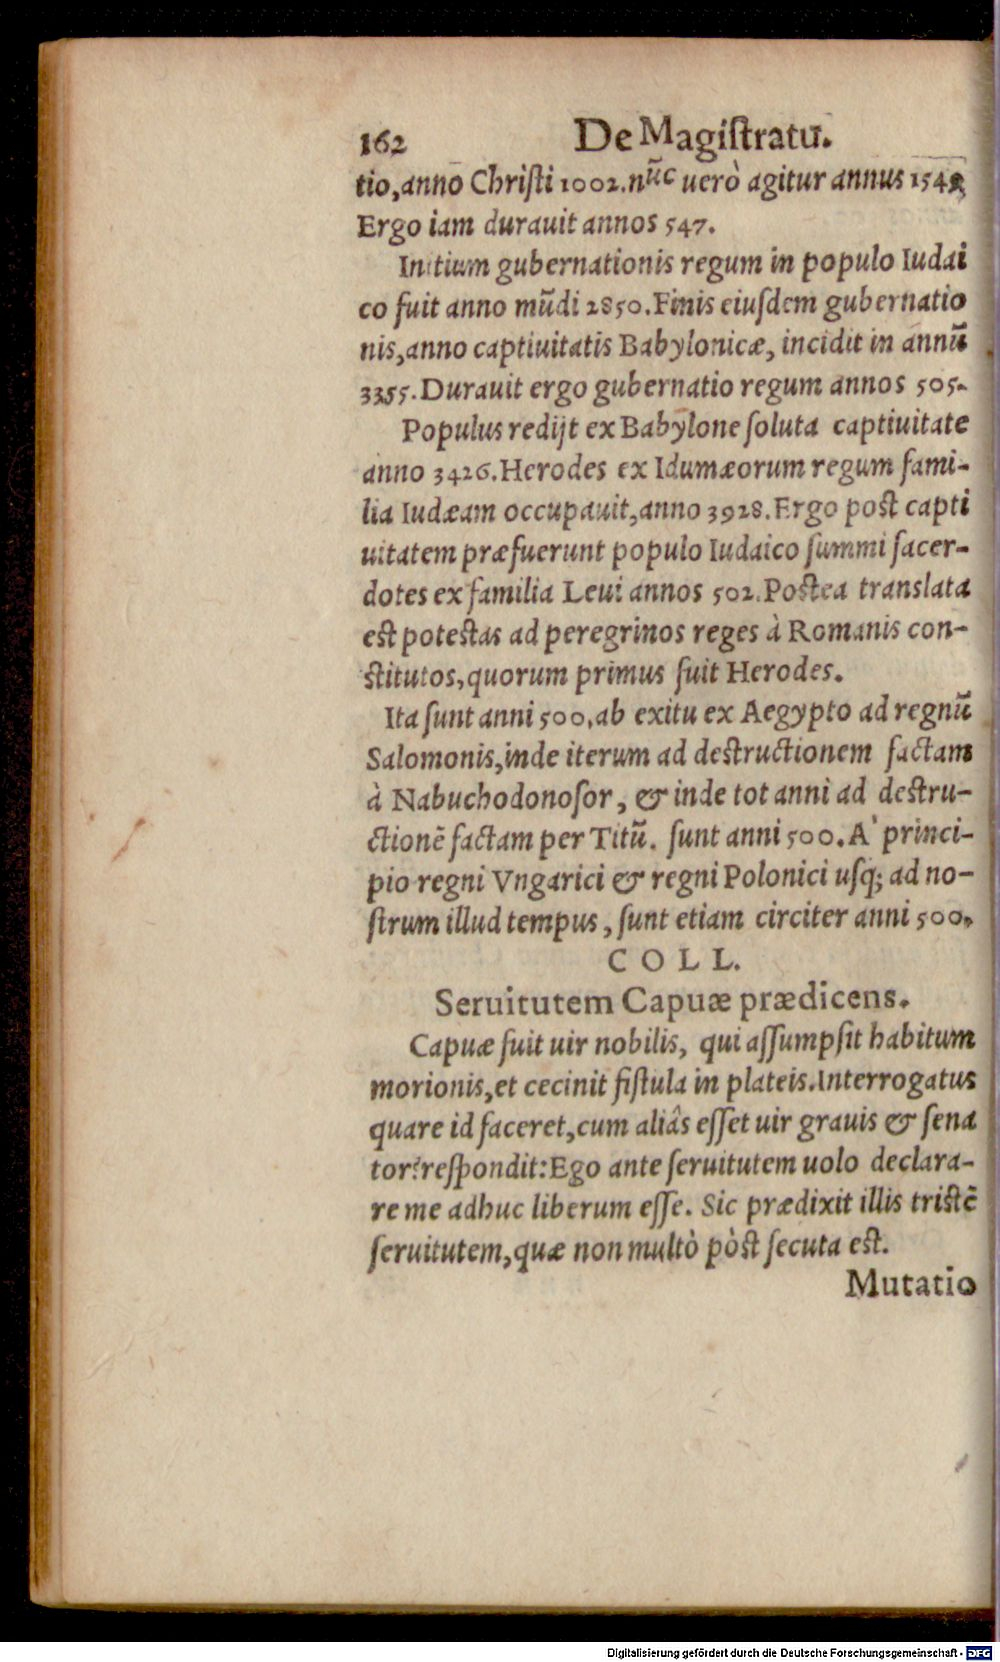 162 De Magiſtratu.
tio, anno Chriſti 1002. nũc uerò agitur annus 1549
Ergo iam durauit annos 547.
Initium gubernationis regum in populo Iudai
co fuit anno mũdi 2850. Finis eiuſdem gubernatio
nis, anno captiuitatis Babylonicæ, incidit in annũ
3355. Durauit ergo gubernatio regum annos 505.
Populus redijt ex Babylone ſoluta captiuitate
anno 3426. Herodes ex Idumæorum regum fami-
lia Iudæam occupauit, anno 3928. Ergo poſt capti
uitatem præfuerunt populo Iudaico ſummi ſacer-
dotes ex familia Leui annos 502. Poſtea translata
eſt poteſtas ad peregrinos reges à Romanis con-
ſtitutos, quorum primus fuit Herodes.
Ita ſunt anni 500, ab exitu ex Aegypto ad regnũ
Salomonis, inde iterum ad deſtructionem factam
à Nabuchodonoſor, & inde tot anni ad deſtru-
ctionẽ factam per Titũ. ſunt anni 500. A` princi-
pio regni Vngarici & regni Polonici uſq; ad no-
ſtrum illud tempus, ſunt etiam circiter anni 500.
COLL.
Seruitutem Capuæ prædicens.
Capuæ fuit uir nobilis, qui aſſumpſit habitum
morionis, et cecinit fiſtula in plateis. Interrogatus
quare id faceret, cum aliâs eſſet uir grauis & ſena
tor? reſpondit: Ego ante ſeruitutem uolo declara-
re me adhuc liberum eſſe. Sic prædixit illis triſtẽ
ſeruitutem, quæ non multò pòſt ſecuta eſt.
Mutatio
Digitalisierung gefördert durch die Deutsche Forschungsgemeinschaft - DFG